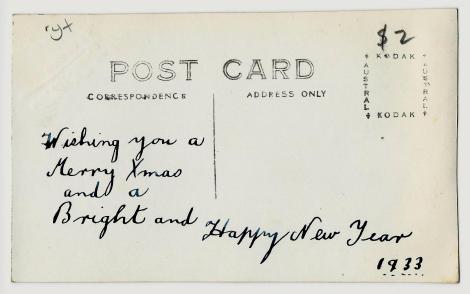 ryx
$2
POST CARD
CORRESPONDENCE
ADDRESS ONLY
KODAK
AUSTRAL
AUSTRAL
KODAK
Wishing you a
Merry Xmas
and a
Bright and
Happy New Year
1933